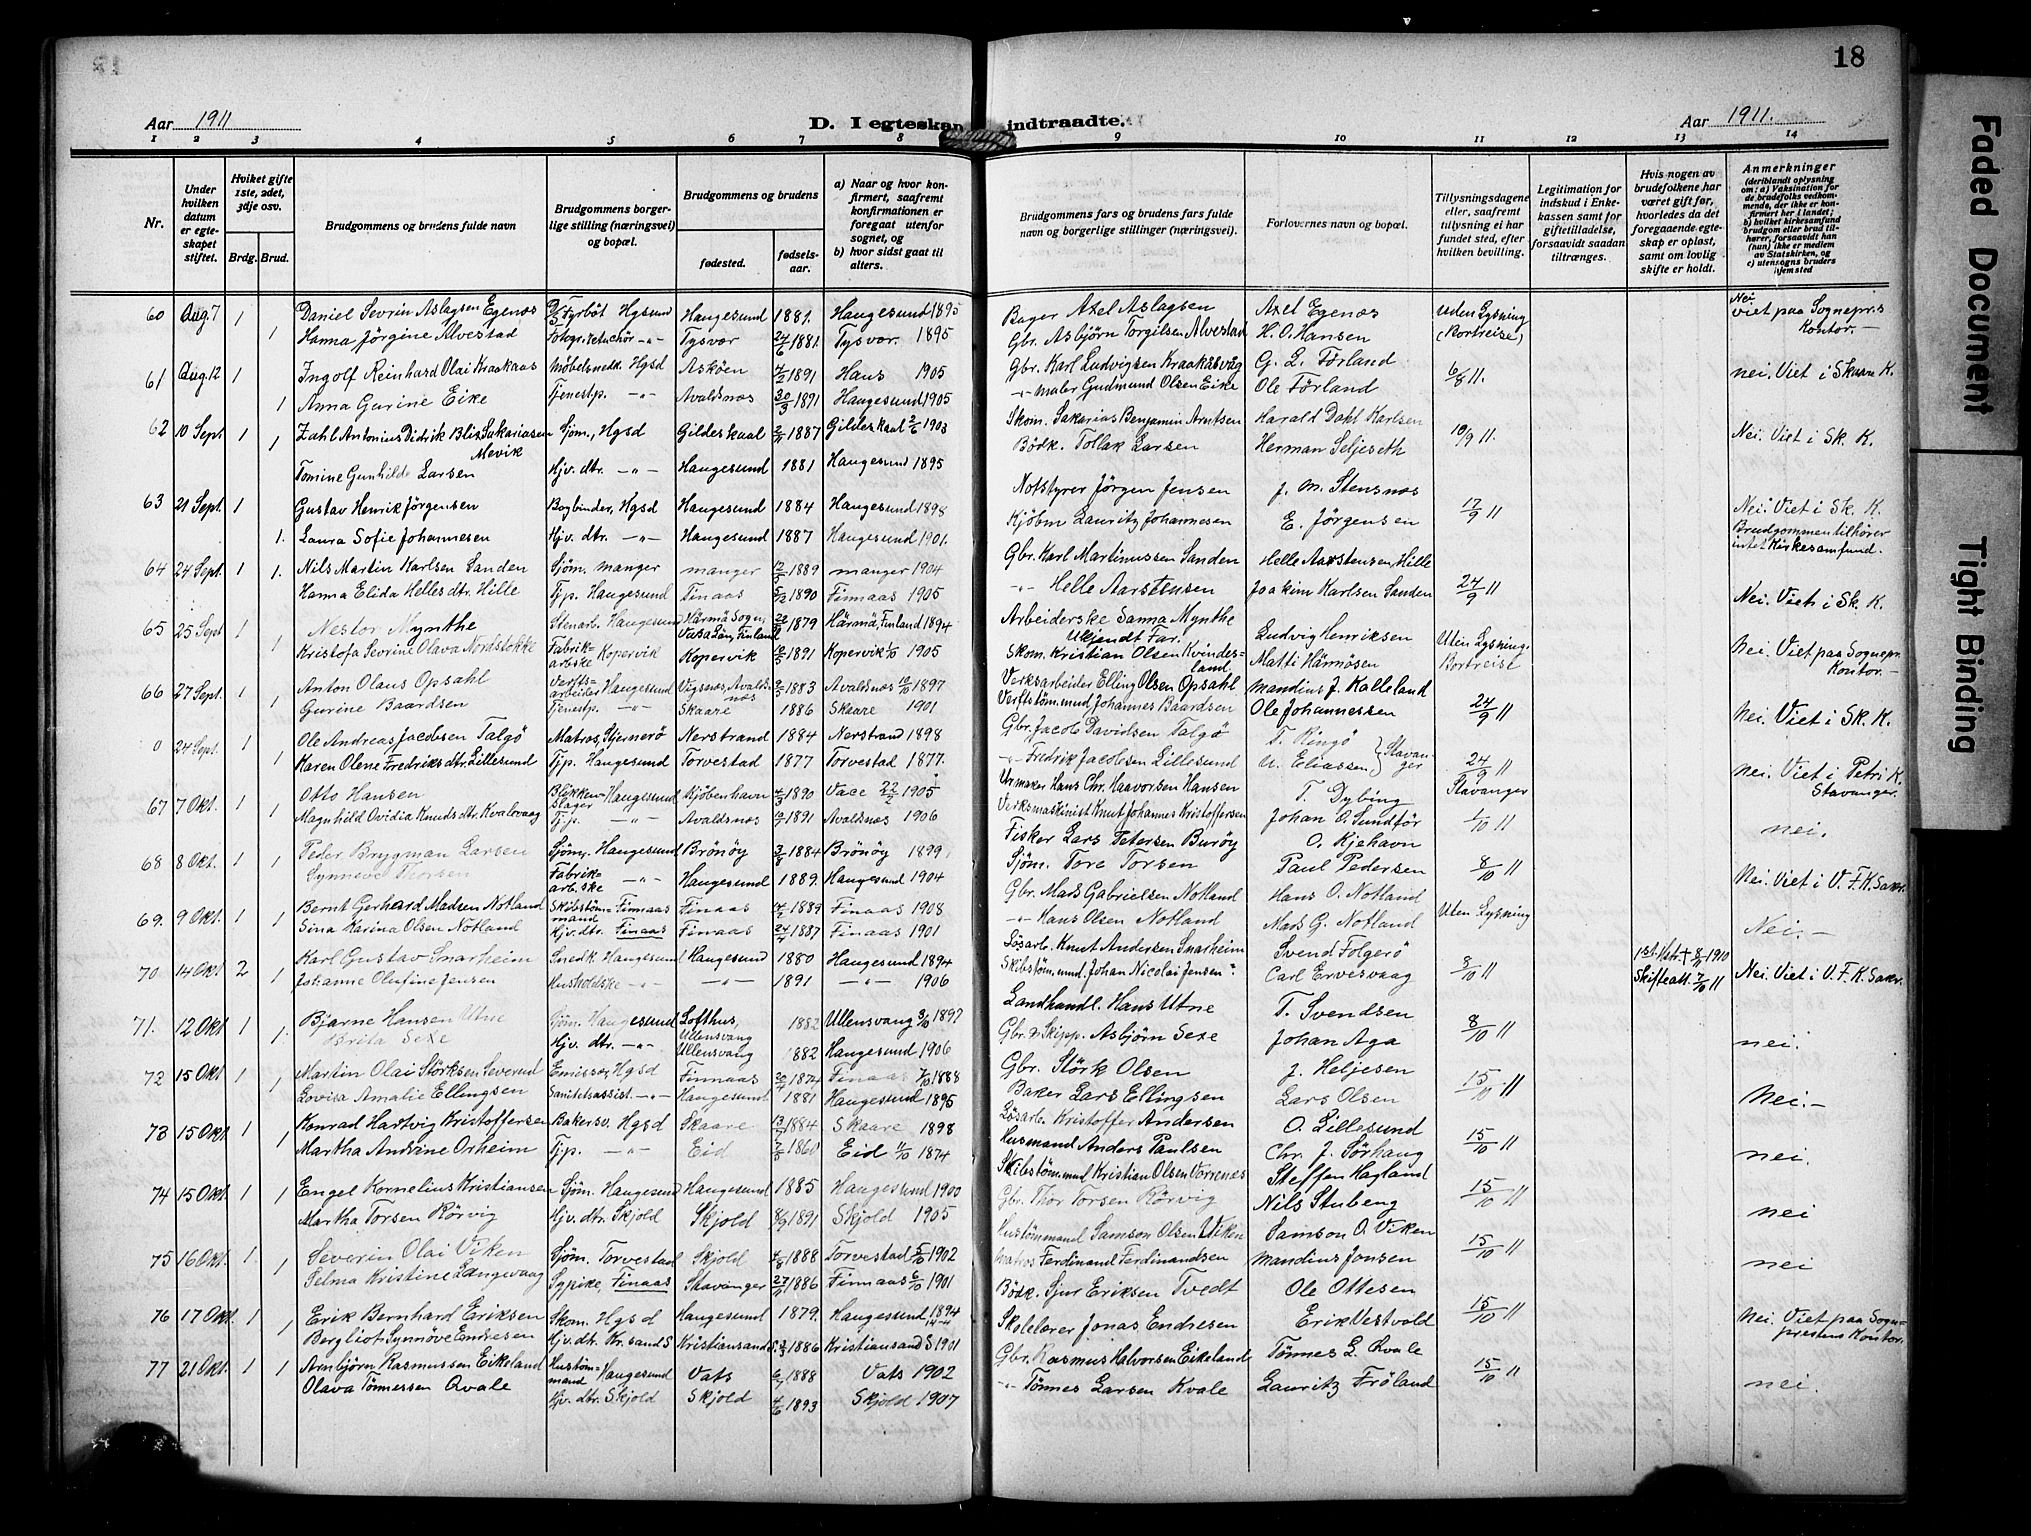 18
Aar 1911
D. I egteskap indtraadte.
Aar 1911.
1 2 3 4 5 6 7 8 9 10 11 12 13 14
Nr.
Under hvilken datum er egteskapet stiftet.
Hviket gifte 1ste, 2det, 3dje osv.
Brdg. Brud.
Brudgommens og brudens fulde navn
Brudgommens borgerlige stilling (næringsvei) og bopæl.
Brudgommens og brudens
fødested.
fødselsaar.
a) Naar og hvor konfirmert, saafremt konfirmationen er foregaat utenfor sognet, og
b) hvor sidst gaat til alters.
Brudgommens fars og brudens fars fulde navn og borgerlige stillinger (næringsvei).
Forlovernes navn og bopæl.
Tillysningsdagene eller, saafremt tillysning ei har fundet sted, efter hvilken bevilling.
Legitimation for indskud i Enkekassen samt for giftetilladelse, forsaavidt saadan tiltrænges.
Hvis nogen av brudefolkene har været gift før, hvorledes da det foregaaende egteskap er opløst, samt om lovlig skifte er holdt.
Anmerkninger
(deriblandt oplysning om: a) Vaksination for de brudefolks vedkommende, der ikke er konfirmert her i landet; b) hvilket kirkesamfund brudgom eller brud tilhører, forsaavidt han (hun) ikke er medlem av Statskirken, og c) utensogns bruders hjemsted
60 Aug. 7 1 Daniel Sevrin Aslagsen Egenæs Hgsund Haugesund 1881. Haugesund 1895 Bager Axel Aslagsen Axel Egenæs Uden Lysning Nei. Viet paa Sognepr.s
1 Hanna Jörgine Alvestad Fotogr. retuchör -"- Tysvær 24/6 1881. Tysvær. 1895 Gbr. Asbjörn Torgilsen Alvestad H. O. Hansen (Bortreise) Kontor. -
61 Aug. 12 1 Ingolf Reinhard Olai Kraakaas Møbelsnedk. Hgsd Asköen 4/2 1891 Haus 1905 Gbr. Karl Ludvigsen Kraakåsvåg G. L. Förland 6/8 11. nei. Viet i Skaare K.
1 Anna Gurine Eike Tjenestp. -"- Avaldsnes 30/3 1891 Haugesund 1905 -"- maler Gudmund Olsen Eike Ole Förland
62 10 Sept 1 Zahl Antonius Didrik Blix Sakariassen Mevik Sjöm., Hgsd Gildeskaal 1887 Gildeskaal 2/6 1903 Skom. Sakarias Benjamin Arntsen Harald Dahl Karlsen 10/9 11. Nei. Viet i Sk. K.
1 Tomine Gunhilde Larsen Hjv. dtr. -"- Haugesund 1881 Haugesund 1895 Bödk. Tollak Larsen Herman Seljeseth
63 21 Sept. 1 Gustav Henrik Jörgensen Bogbinder, Hgsd Haugesund 1884 Haugesund 1898 Notstyrer Jörgen Jensen J. M. Stensnæs 17/9 11 Nei. Viet i Sk. K.
1. Laura Sofie Johannesen Hjv. dtr. -"- Haugesund 1887 Haugesund 1901. Kjöbm Lauritz Johannesen E. Jörgensen Brudgommen tilhörer intet Kirkesamfund.
64 24 Sept. 1 1. Nils Martin Karlsen Sanden Sjöm. Manger Manger 12/5 1889 Manger 1904 Gbr. Karl Martinussen Sanden Helle Aarstensen Hille 24/9 11 Nei. Viet i Sk. K.
Hanna Elida Hellesdtr. Hille Tj.p. Haugesund Finaas 5/2 1890 Finnaas 1905 -"- Helle Aarstensen Joakim Karlsen Sanden
65 25 Sept 1 Nestor Mynthe Stenarb. Haugesund Härmä Sogn, Vasa Län, Finland 1879 Härmä, Finland 1894 Arbeiderske Sanna Mynthe Ukjendt Far. Ludvig Henriksen Uten Lysning. Nei. Viet paa Sognepr.
1 Kristofa Sevrine Olava Nordstokke Fabrikarbske Kopervik Kopervik 10/5 1891 Kopervik 1/10 1905 Skom. Kristian Olsen Kvindesland. Matti Härmösen Bortreise Kontor. -
66 27 Sept. 1 Anton Olaus Opsahl Verftsarbeider Haugesund Vigsnes, Avaldsnes 1883 Avaldsnes 12/10 1897 Verksarbeider Elling Olsen Opsahl Mandius J. Kalleland 24/9 11 Nei. Viet i Sk. K.
1 Gurine Baardsen Tjenestp. -"- Skaare 1886 Skaare 1901 Verftstöm.mand Johannes Baardsen Ole Johannessen
0 24 Sept. 1 Ole Andreas Jacobsen Talgö Matros, Sjernerö Nerstrand 1884 Nerstrand 1898 Gbr. Jacob Davidsen Talgö T. Ringö Stavanger 24/9 11 Nei. Viet i Petri K.
1 Karen Olene Fredriksdtr. Lillesund Tj.p. Haugesund Torvestad 1877 Torvestad 1877. -"- Fredrik Jacobsen Lillesund U. Eliassen Stavanger Stavanger.
67 7 Okt. 1 Otto Hansen Blikkenslager Haugesund Kjöbenhavn 4/3 1890 22/2 1905 Urmaker Hans Chr. Haavorsen Hansen T. Dybing 1/10 11 nei.
1 Magnhild Ovidia Knudsdtr. Kvalevaag Tj.p. -"- Avaldsnes 1891 Avaldsnes 1906 Verksmaskinist Knut Johannes Kristoffersen Johan O. Sundför
68 8 Okt. 1 1 Peder Brygman Larsen Sjöm. Haugesund Brönöy 3/8 1884 Brönöy 1899 Fisker Lars Petersen Buröy O. Kjehavn 8/10 11 Nei. Viet i V. F. K. Sakr.
Synneve Thorsen Fabrikarb.ske -"- Haugesund 1889. Haugesund 1904 Sjöm. Tore Torsen Paul Pedersen
69. 9 Okt. 1 1 Bernt Gerhard Madsen Notland Skibstömmand Finnaas Finaas 1889 Finaas 1908 Gbr. Mads Gabrielsen Notland Hans O. Notland Uten Lysning Nei. -
Sina Karina Olsen Notland Hjv. dtr. Finaas Finaas 24/4 1887 Finaas 1901 -"- Hans Olsen Notland Mads G. Notland
70 14 Okt 2 1 Karl Gustav Snarheim Snedk. Haugesund Haugesund 1880 Haugesund 1894 Lösarb. Knut Andersen Snarheim Svend Folgerö 8/10 11 1910 Nei. Viet i V. F. K. Sakr.
Johanne Olufine Jensen Husholdske -"- -"- 1891 -"- 1906 Skibstöm.mnd. Johan Nicolai Jensen Carl Ervesvaag Skifteatt. 7/10 11
71. 12 Okt 1 1. Bjarne Hansen Utne Sjöm. Haugesund Lofthus, Ullensvang 1882 Ullensvang 3/10 1897 Landhandl. Hans Utne T. Svendsen 8/10 11 nei.
Brita Sexe Hjv. dtr. -"- Ullensvang 1882 Haugesund 1906 Gbr. & Skipp. Asbjörn Sexe Johan Aga
72 15 Okt 1 1 Martin Olai Störksen Severud Emissær, Hgsd Finnaas 20/4 1874 Finaas 7/10 1888 Gbr. Störk Olsen J. Heljesen 15/10 11 Nei. -
Lovisa Amalie Ellingsen Sanitetsassist. -"- Haugesund. 1881 Haugesund 1895 Baker Lars Ellingsen Lars Olsen
73 15 Okt. 1 1 Konrad Hartvig Kristoffersen Bakersv. Hgsd Skaare 1884 Skaare 1898 Lösarb. Kristoffer Andersen O. Lillesund 15/10 11 nei.
Martha Andrine Orheim Tj.p. -"- Eid 1860 Eid 11/10 1874 Husmand Anders Paulsen Chr. J. Sörhaug
74 15 Okt. 1 1 Engel Kornelius Kristiansen Sjöm. Haugesund Haugesund 1885 Haugesund 1900 Skibstöm.mnd Kristian Olsen Vorrenæs Steffen Hagland 15/10 11 nei
Martha Torsen Rörvig Hjv. dtr. Skjold Skjold 8/9 1891 Skjold 1905 Gbr. Thor Torsen Rörvig Nils Stuberg
75 16 Okt. 1. 1 Severin Olai Viken Sjöm. Torvestad Skjold 4/8 1888 Torvestad 5/10 1902 Hustömmand Samson Olsen Viken Samson O. Viken 15/10 11 nei
Selma Kristine Langevaag Sypike, Finaas Stavanger 1886 Finnaas 6/10 1901 Matros Ferdinand Ferdinandsen Mandius Jonsen
76 17 Okt. 1 1 Erik Bernhard Eriksen Skom. Hgsd Haugesund 1879. Haugesund 1894 Bödk. Sjur Eriksen Tvedt Ole Ottesen 15/10 11 Nei. Viet paa Sogne-
Bergliot Synnöve Endresen Hjv. dtr. Kr.sand S Kristiansand S. 1886 Kristiansand S 1901 Skolelærer Jonas Endresen Erik Vestvold prestens Kontor.
77 21 Okt. 1 1 Arnbjörn Rasmussen Eikeland Hustömmand Haugesund Vats 1888 Vats 1902 Gbr. Rasmus Halvorsen Eikeland Tönnes L. Kvale 15/10 11 nei.
Olava Tönnessen Qvale Hjv. dtr. Skjold Skjold 4/6 1893 Skjold 1907 -"- Tönnes Larsen Kvale Lauritz Fröland
Faded Document
Tight Binding